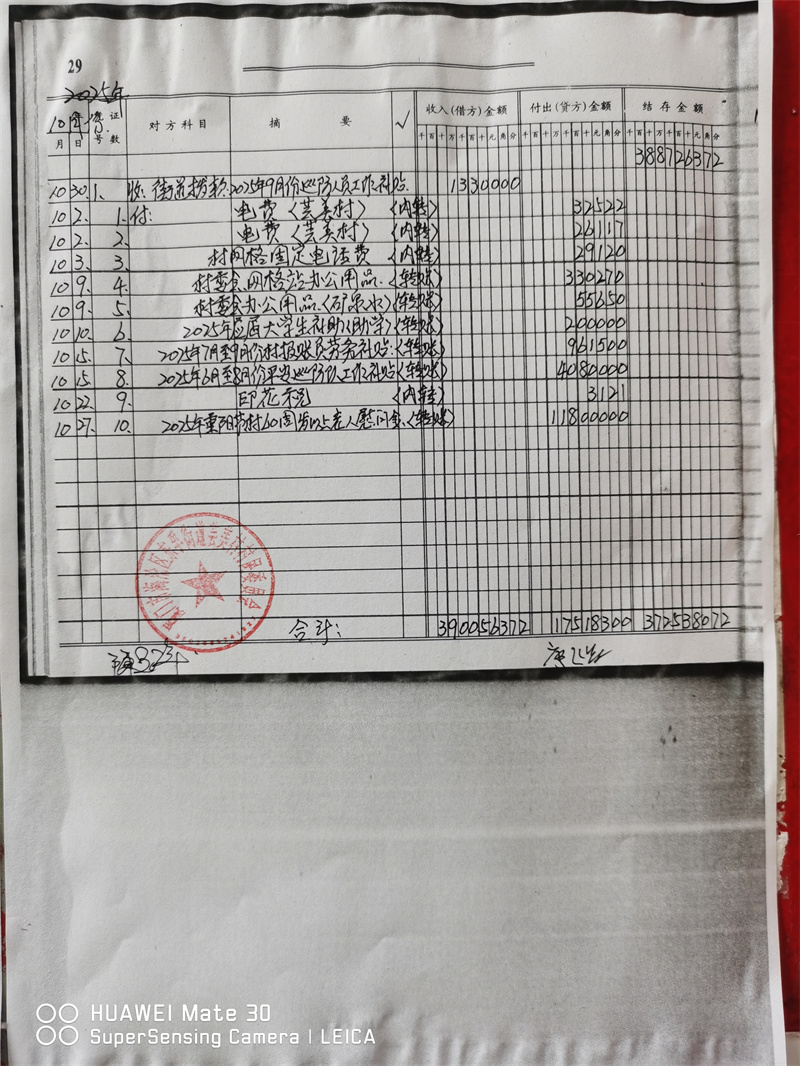 29
2025年
10年 凭证
月 日 号数 对方科目 摘要 √ 收入(借方)金额 付出(贷方)金额 结存金额
千百十万千百十元角分 千百十万千百十元角分 千百十万千百十元角分
388726372
10 30. 1. 收: 街道拨款.2025年9月份巡防人员工作补贴. 1330000
10 2. 1. 付: 电费〈芸美村〉〈内转〉 32522
10 2. 2. 电费〈芸美村〉〈内转〉 26117
10 3. 3. 村网格固定电话费〈内转〉 29120
10 9. 4. 村委会.网格站办公用品.〈转账〉 330270
10 9. 5. 村委会办公用品.〈矿泉水〉〈转账〉 55650
10 10. 6. 2025年应届大学生补助〈助学〉〈转账〉 200000
10 15. 7. 2025年7月至9月份村报账员劳务补贴.〈转账〉 961500
10 15. 8. 2025年6月至8月份平安巡防队工作补贴〈转账〉 4080000
10 22. 9. 印花税〈内转〉 3121
10 27. 10. 2025年重阳节村60周岁以上老人慰问金.〈转账〉 11800000
合计: 390056372 17518300 372538072
HUAWEI Mate 30
SuperSensing Camera | LEICA